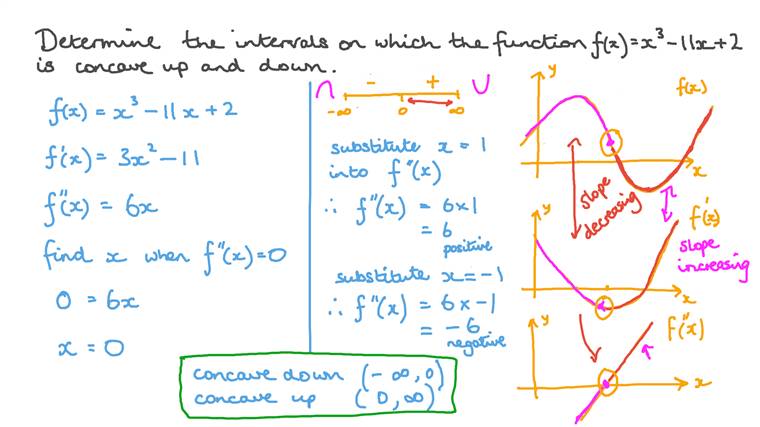 Determine the intervals on which the function f(x)=x³-11x+2
is concave up and down.
f(x) = x³ - 11x + 2
f'(x) = 3x² - 11
f''(x) = 6x
find x when f''(x)=0
0 = 6x
x = 0
∩ - + ∪
-∞ 0 ∞
substitute x = 1
into f''(x)
∴ f''(x) = 6×1
= 6
positive
substitute x = -1
∴ f''(x) = 6 × -1
= -6
negative
concave down (-∞,0)
concave up (0,∞)
y
f(x)
x
slope
decreasing
y
f'(x)
slope
increasing
x
y
f''(x)
x